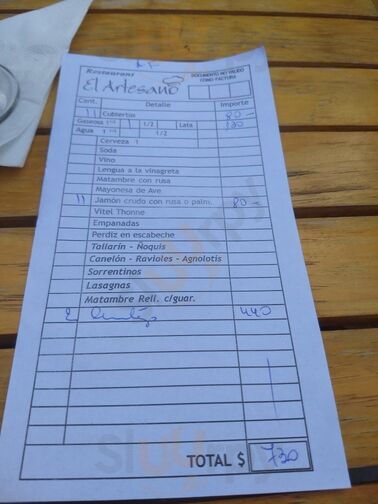 Restaurant
El Artesano
DOCUMENTO NO VALIDO
COMO FACTURA
Cant. Detalle Importe
11 Cubiertos 80 -
Gaseosa 1 1/2 Lata 130
Agua 1 1/2
Cerveza 1
Soda
Vino
Lengua a la vinagreta
Matambre con rusa
Mayonesa de Ave
11 Jamón crudo con rusa o palm. 80 -
Vitel Thonne
Empanadas
Perdiz en escabeche
Tallarín - Ñoquis
Canelón - Ravioles - Agnolotis
Sorrentinos
Lasagnas
Matambre Rell. c/guar.
2 440
TOTAL $ 730